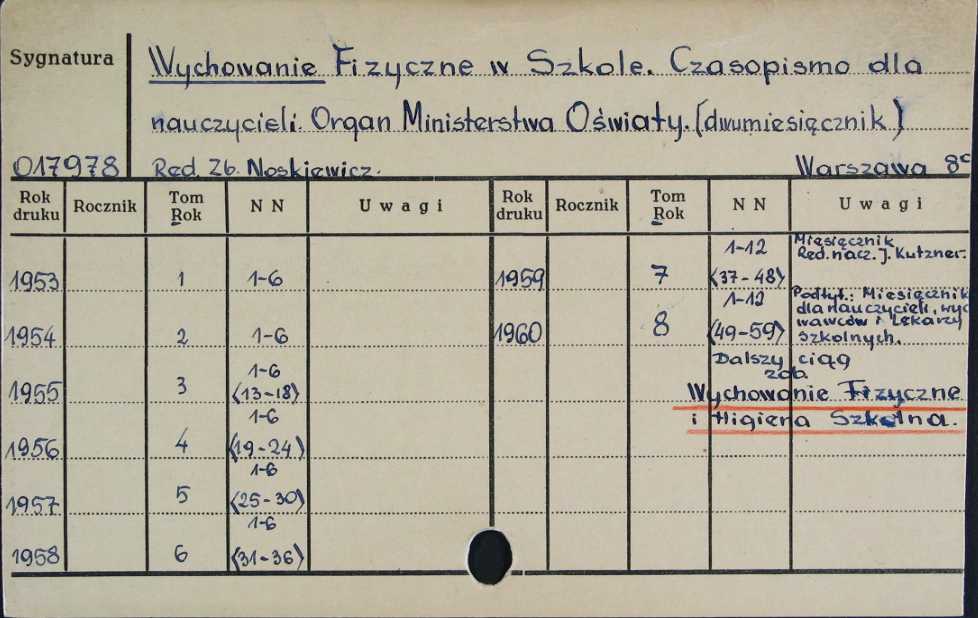 Sygnatura
Wychowanie Fizyczne w Szkole. Czasopismo dla
nauczycieli. Organ Ministerstwa Oświaty. (dwumiesięcznik)
017978 Red. Zb. Noskiewicz. Warszawa 8°
Rok druku Rocznik Tom Rok N N Uwagi Rok druku Rocznik Tom Rok N N Uwagi
1953 1 1-6
1954 2 1-6
1955 3 1-6 <13-18>
1956 4 1-6 <19-24>
1957 5 1-6 <25-30>
1958 6 1-6 <31-36>
1959 7 1-12 <37-48> Miesięcznik
Red. nacz. J. Kutzner.
1960 8 1-12 <49-59> Podtyt.: Miesięcznik
dla nauczycieli, wyc
wawców i Lekarzy
szkolnych.
Dalszy ciąg
zob.
Wychowanie Fizyczne
i Higiena Szkolna.